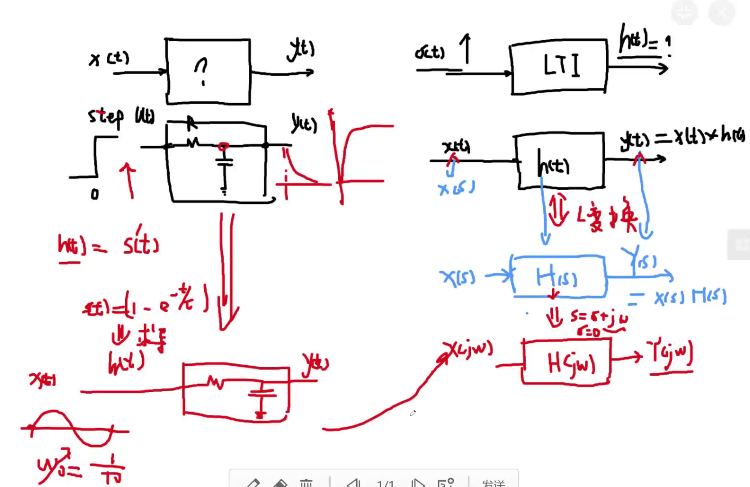 x(t)
?
y(t)
step u(t)
R
y(t)
0
h(t) = s'(t)
s(t)=(1 - e^{-t/τ})
h(t)
x(t)
y(t)
w₀ = 1/T₀
δ(t)
LTI
h(t)=?
x(t)
h(t)
y(t) = x(t)*h(t)
X(s)
L变换
X(s)
H(s)
Y(s)
= X(s) H(s)
s=σ+jw
σ=0
X(jw)
H(jw)
Y(jw)
1/1
发送